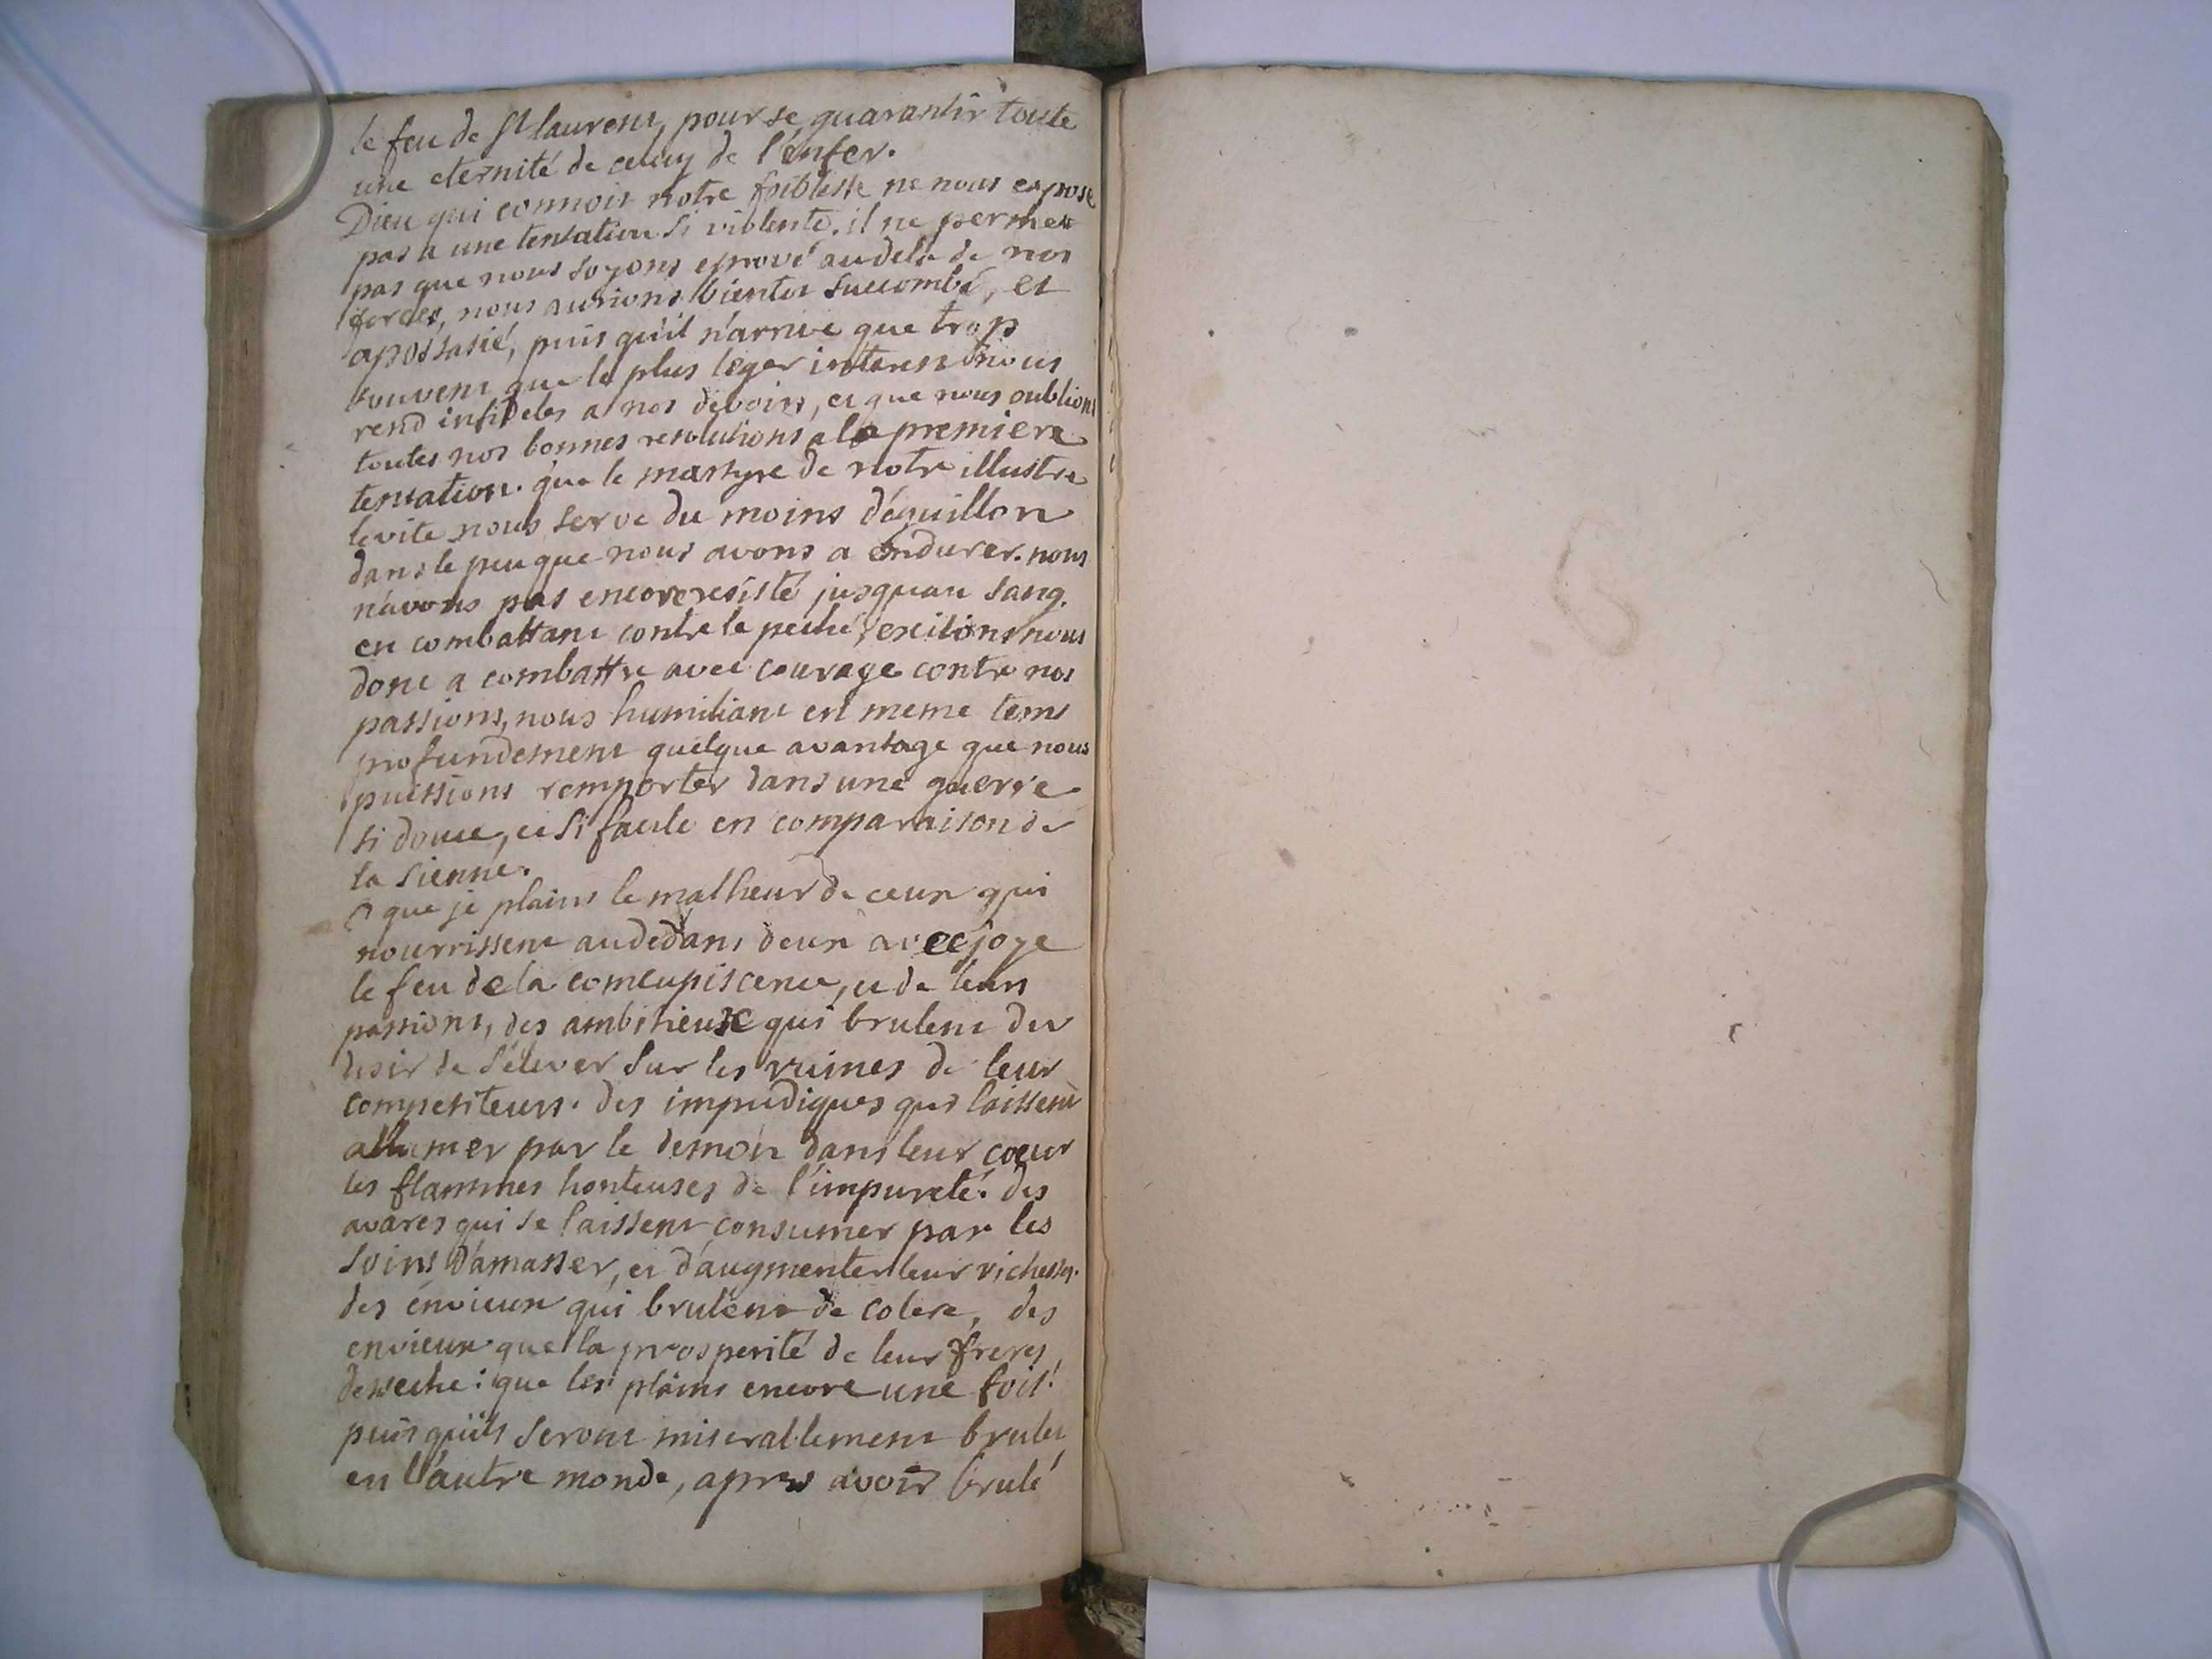 le feu de St laurent, pour se guarantir toute
une eternité de celuy de l'enfer.
Dieu qui connoit notre foiblesse ne nous expose
pas a une tentation si violente. il ne permet
pas que nous soyons eprové audela de nos
forces, nous aurions bientot succombé, et
apostasié, puis qu'il n'arrive que trop
souvent que le plus leger interest nous
rend infideles a nos devoirs, et que nous oublions
toutes nos bonnes resolutions a la premiere
tentation. que le martyre de notre illustre
levite nous serve du moins d'éguillon
dans le peu que nous avons a endurer. nous
n'avons pas encore resisté jusquau sang.
en combattant contre le peché, excitons nous
donc a combattre avec courage contre nos
passions, nous humiliant en meme tems
profundement quelque avantage que nous
puissions remporter dans une guerre
si douce, et si facile en comparaison de
la sienne.
O que je plains le malheur de ceux qui
nourrissent audedans deux avec joye
le feu de la comcupiscence, et de leurs
passions, des ambitieux qui brulent du
desir de s'elever sur les ruines de leur
competiteurs. des impudiques qui laissent
allumer par le demon dans leur coeur
les flammes honteuses de l'impureté. des
avares qui se laissent consumer par les
soins d'amasser, et d'augmenter leur richesses.
des envieux qui brulent de colere, des
envieux que la prosperité de leur freres
desseche: que les plains encore une fois!
puis qu'ils seront miserablement brulés
en l'autre monde, apres avoir brulé